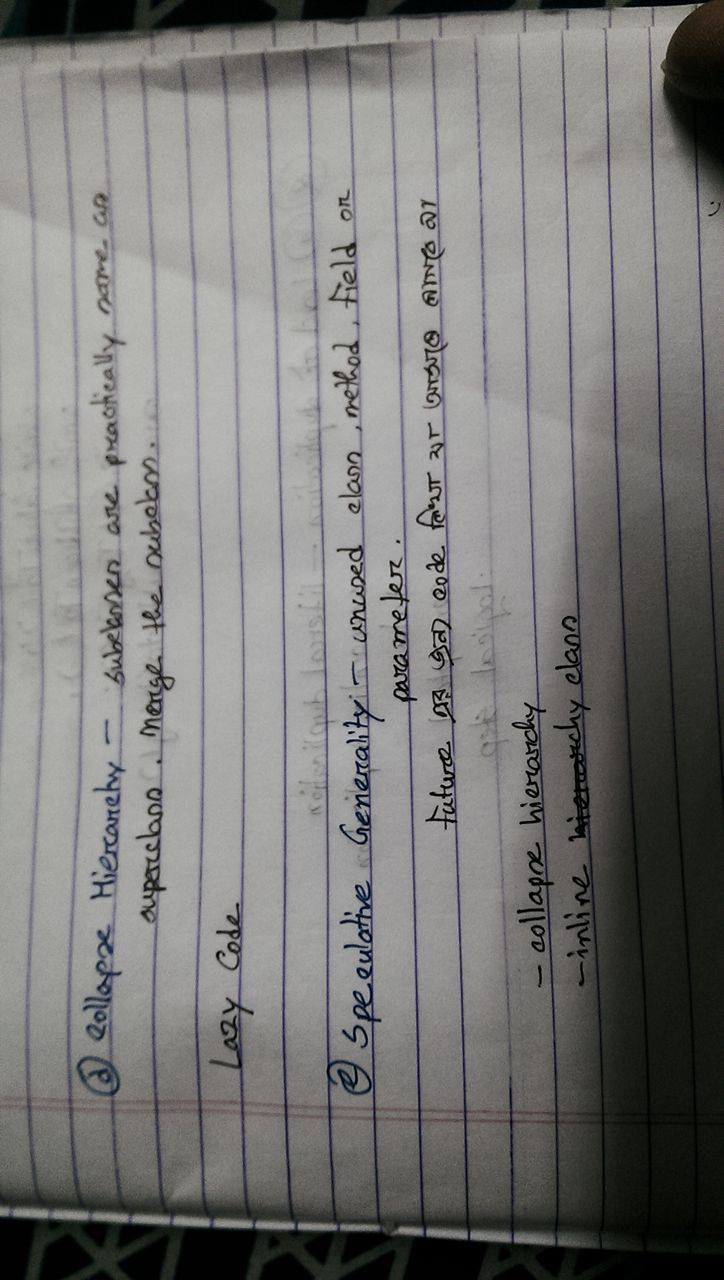 (d) Collapse Hierarchy – subclasses are practically same as
superclass. Merge the subclass.
Lazy Code
(e) Speculative Generality – unused class, method, field or
parameter.
future এর জন্য code লিখা যা আসতে লাগবে না
- collapse hierarchy
- inline hierarchy class